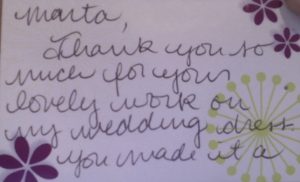 Marta,
Thank you so
much for your
lovely work on
my wedding dress.
you made it a